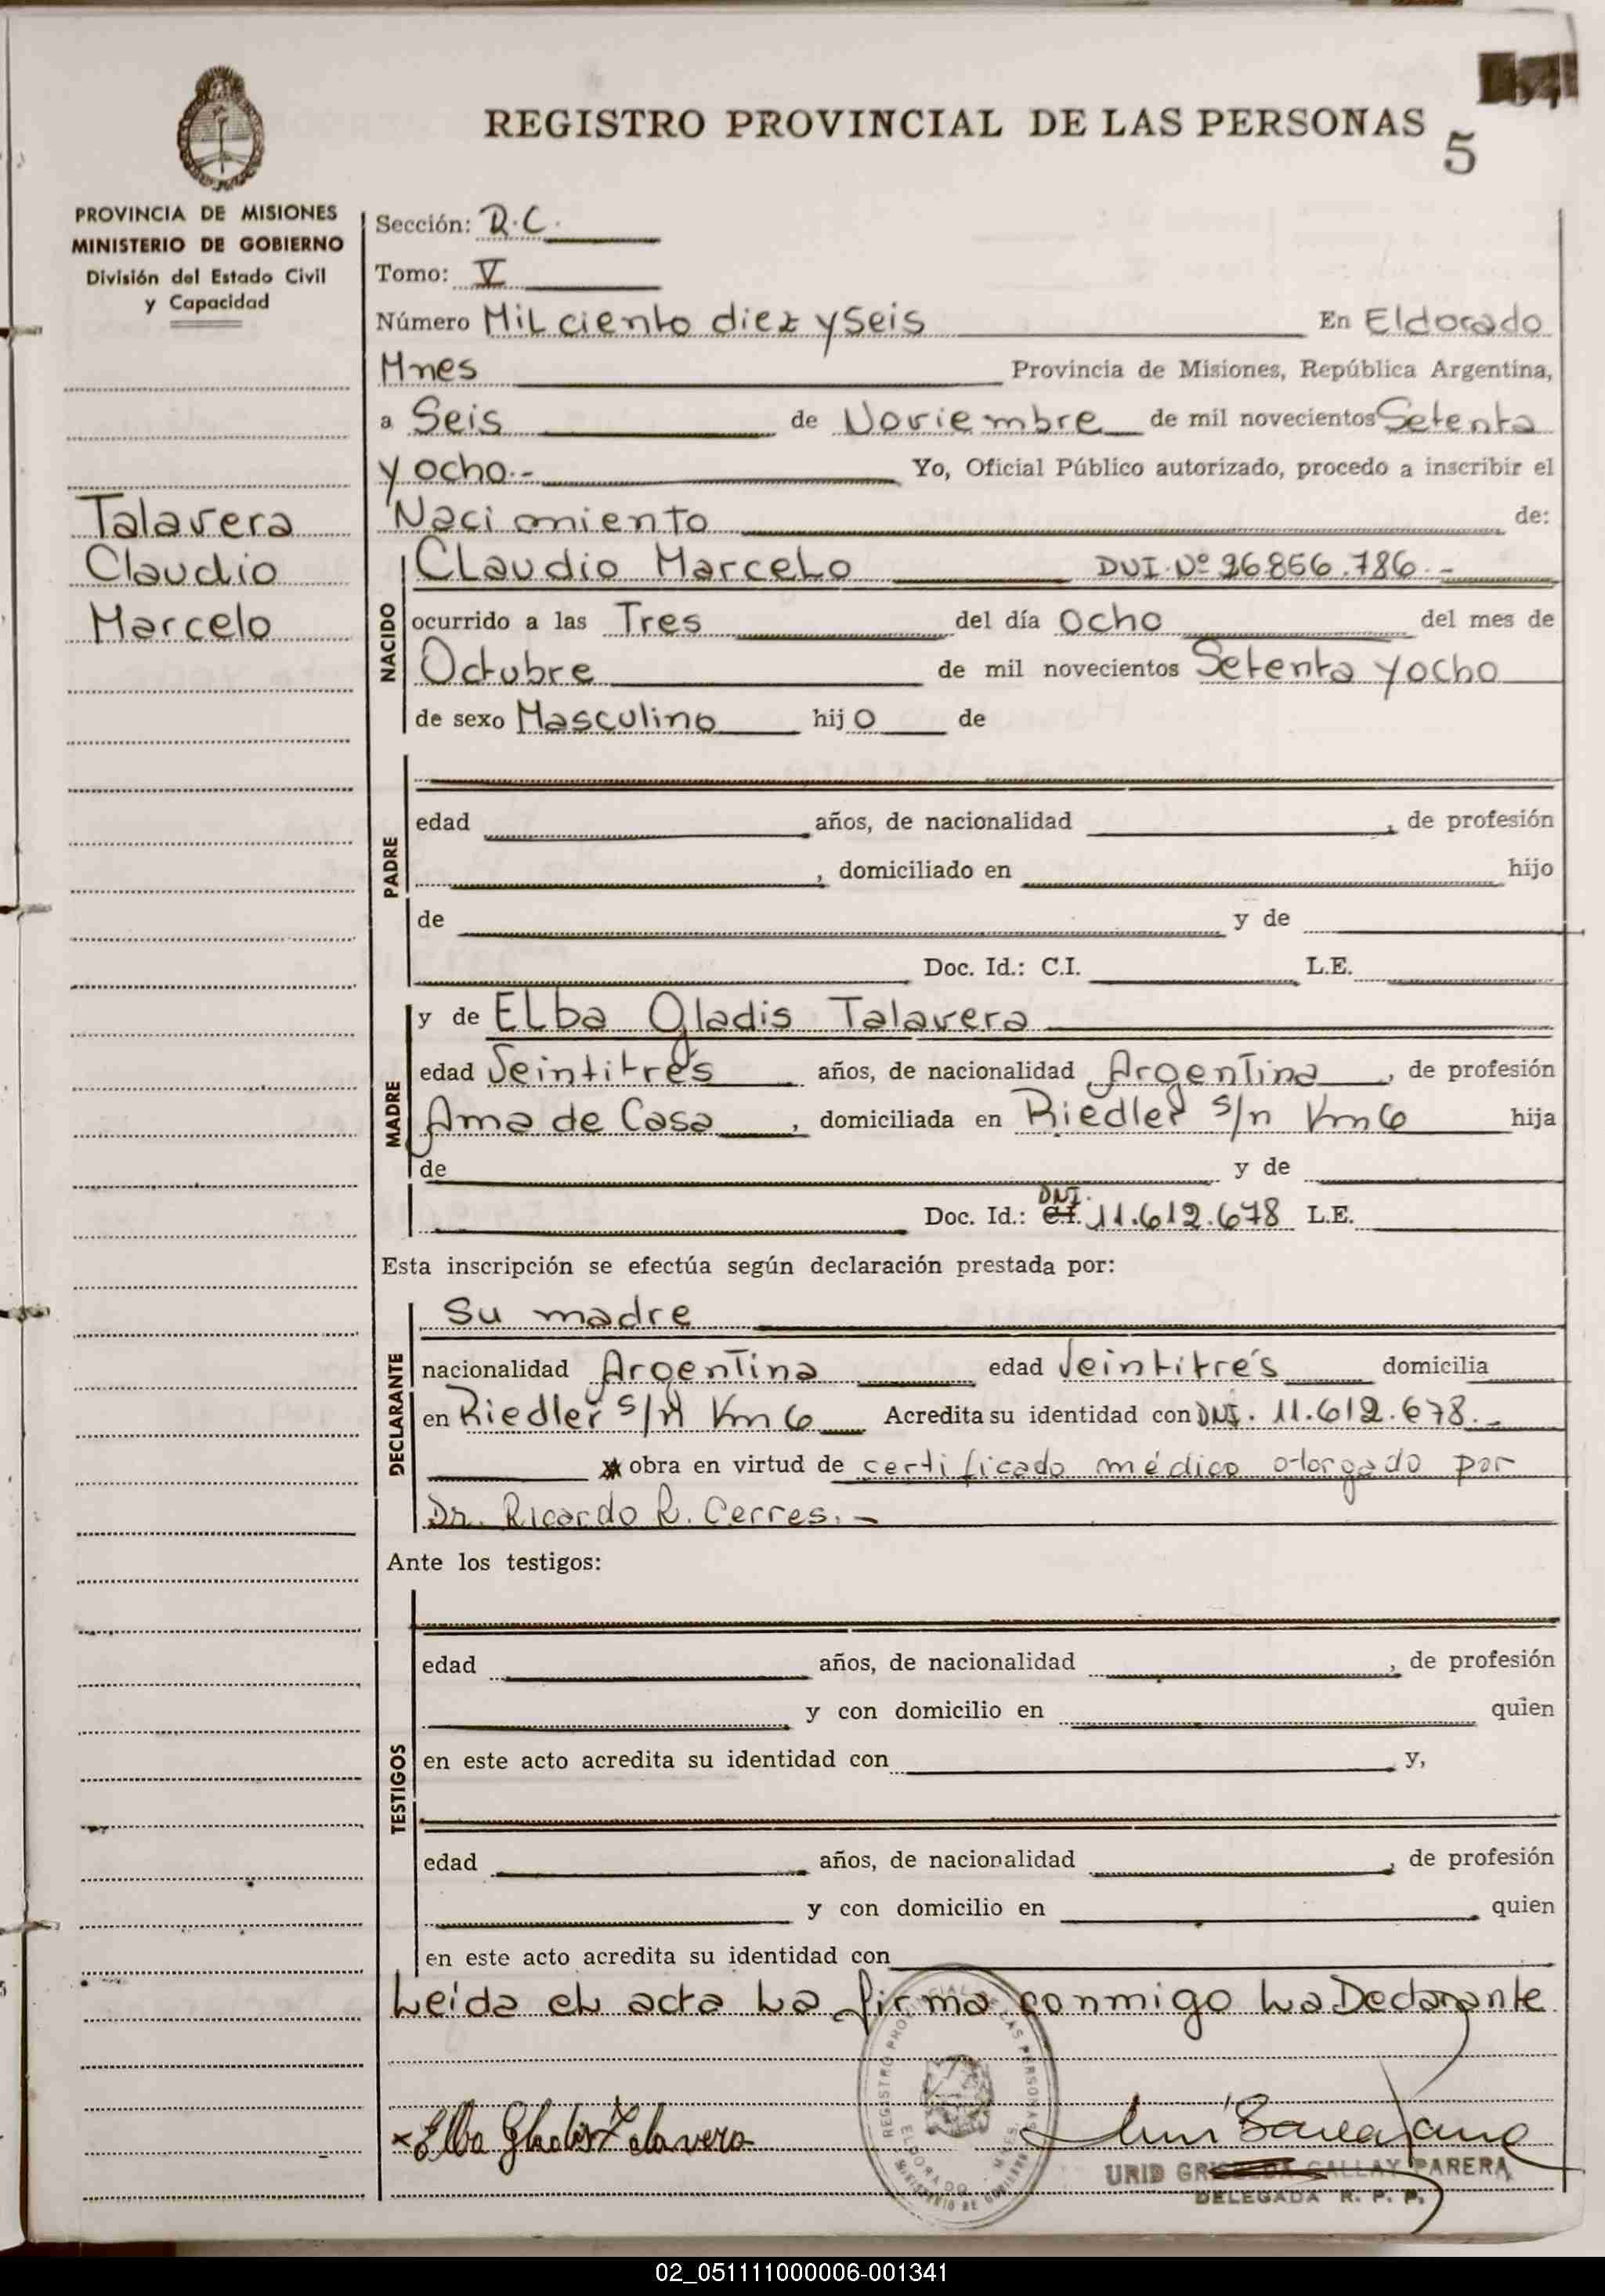 REGISTRO PROVINCIAL DE LAS PERSONAS
5
PROVINCIA DE MISIONES
MINISTERIO DE GOBIERNO
División del Estado Civil
y Capacidad
Talavera
Claudio
Marcelo
Sección: R.C.
Tomo: V
Número Mil ciento diez y seis En Eldorado
Mnes Provincia de Misiones, República Argentina,
a Seis de Noviembre de mil novecientos Setenta
y ocho.- Yo, Oficial Público autorizado, procedo a inscribir el
Nacimiento de:
NACIDO
Claudio Marcelo DNI. Nº 26.856.786.-
ocurrido a las Tres del día Ocho del mes de
Octubre de mil novecientos Setenta y ocho
de sexo Masculino hijo de
PADRE
edad años, de nacionalidad , de profesión
, domiciliado en hijo
de y de
Doc. Id.: C.I. L.E.
MADRE
y de Elba Gladis Talavera
edad Veintitrés años, de nacionalidad Argentina, de profesión
Ama de Casa, domiciliada en Riedler s/n Km 6 hija
de y de
DNI.
Doc. Id.: C.I. 11.612.678 L.E.
Esta inscripción se efectúa según declaración prestada por:
DECLARANTE
Su madre
nacionalidad Argentina edad Veintitrés domicilia
en Riedler s/n Km 6 Acredita su identidad con DNI. 11.612.678.-
obra en virtud de certificado médico otorgado por
Dr. Ricardo R. Cerres.-
Ante los testigos:
TESTIGOS
edad años, de nacionalidad , de profesión
y con domicilio en quien
en este acto acredita su identidad con y,
edad años, de nacionalidad , de profesión
y con domicilio en quien
en este acto acredita su identidad con
Leída el acta la firma conmigo la Declarante
REGISTRO PROVINCIAL DE LAS PERSONAS
ELDORADO - MNES.
MINISTERIO DE GOBIERNO
x Elba Gladis Talavera
URID GALLAY PARERA
DELEGADA R. P. P.
02_051111000006-001341